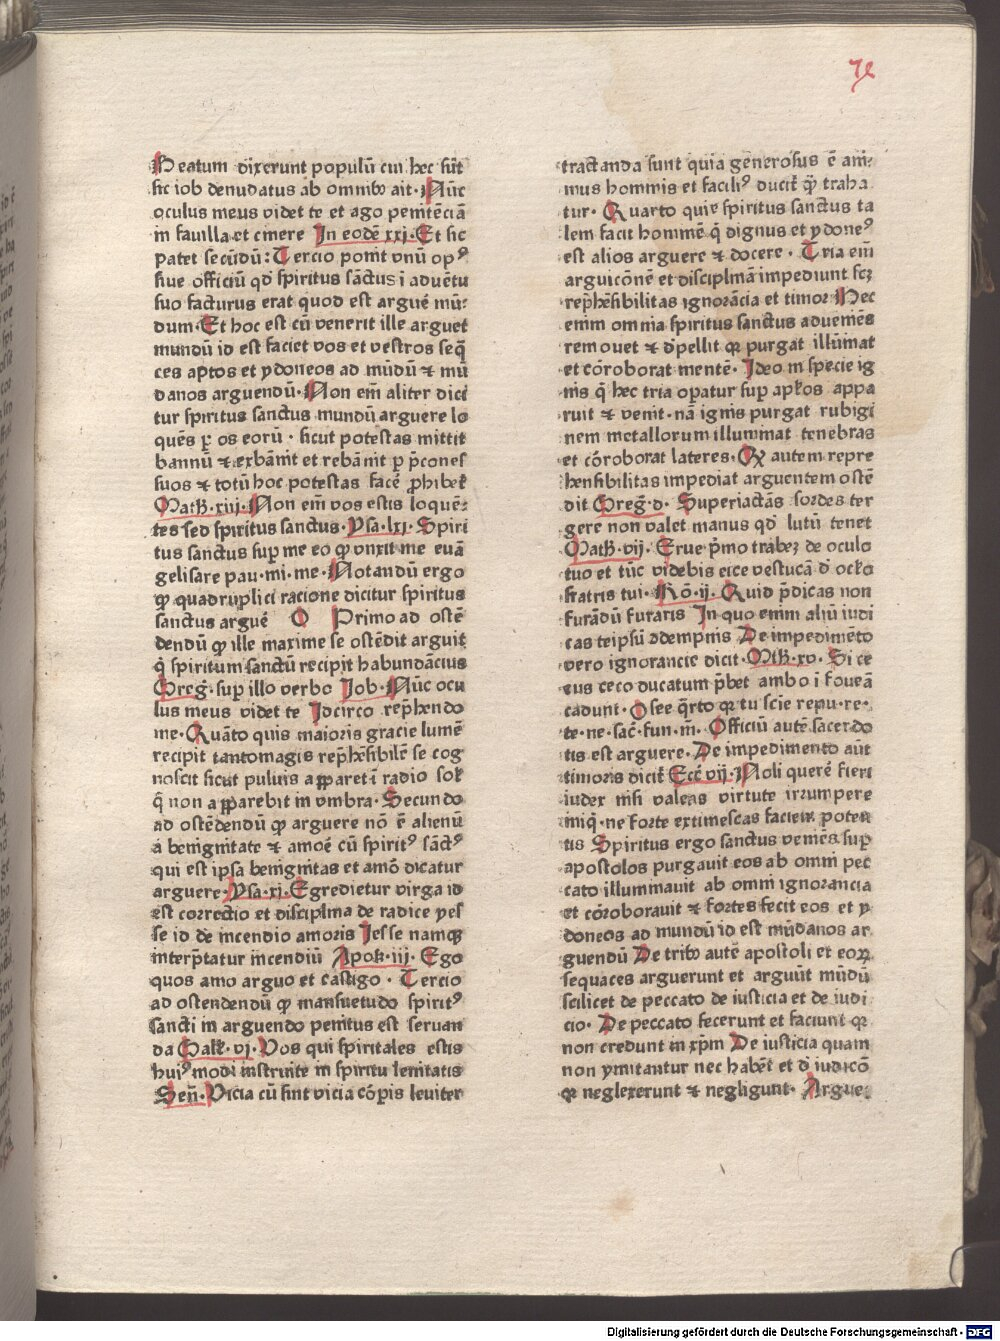 7e
Beatum dixerunt populū cui hec sūt
sic iob denudatus ab omnibꝰ ait· Nūc
oculus meus videt te et ago penitēciā
in fauilla et cinere In eodē xxj· Et sic
patet secūdū: Tercio ponit vnū opꝰ
siue officiū qd̄ spiritus sāctus ī aduētu
suo facturus erat quod est arguē mū⸗
dum· Et hoc est cū venerit ille arguet
mundū id est faciet vos et vestros seq̄
ces aptos et ydoneos ad mūdū ⁊ mū
danos arguendū· Non em̄ aliter dici
tur spiritus sanctus mundū arguere lo
quēs ꝑ os eorū · sicut potestas mittit
bannū ⁊ exbānit et rebānit ꝑ p̄cones
suos ⁊ totū hoc potestas facē ꝓhibet
Math·xiij· Non em̄ vos estis loquē⸗
tes sed spiritus sanctus· Ysa·lxj· Spiri
tus sanctus suꝑ me eo ꝙ vnxit me euā
gelisare pau·mi·me· Notandū ergo
ꝙ quadruplici racione dicitur spiritus
sanctus arguē O Primo ad ostē
dendū ꝙ ille maxime se ostēdit arguit
q̇ spiritum sanctū recipit habundācius
Greg̅· suꝑ illo verbo Job· Nūc ocu
lus meus videt te Idcirco rep̄hendo
me· Quāto quis maioris gracie lumē
recipit tantomagis rep̄hēsibilē se cog
noscit sicut puluis apparet ī radio solꝭ
q̄ non apparebit in vmbra· Secundo
ad ostēdendū ꝙ arguere nō ē alienū
a benignitate ⁊ amoē cū spiritꝰ sāctꝰ
qui est ipsa benignitas et amō dicatur
arguere· Ysa·xi· Egredietur virga id
est correctio et disciplina de radice yes
se id de incendio amoris Iesse namqꝫ
interp̄tatur incendiū Apok·iij· Ego
quos amo arguo et castigo · Tercio
ad ostendendū ꝙ mansuetudo spiritꝰ
sancti in arguendo penitus est seruan
da Gall̄·vj· Vos qui spiritales estis
huiꝰmodi instruite in spiritu lenitatis
Sen̄· Vicia cū sint vicia cōꝑis leuiter
tractanda sunt quia generosus ē ani⸗
mus hominis et faciliꝰ ducit̄ ꝙ̄ traha
tur· Quarto quia spiritus sanctus ta
lem facit hominē q̇ dignus et ydoneꝰ
est alios arguere ⁊ docere · Tria em̄
arguicōnē et disciplinā impediunt scꝫ
rep̄hēsibilitas ignorācia et timor Hec
enim omnia spiritus sanctus adueniēs
remouet ⁊ d̄pellit qꝛ purgat illūinat
et cōroborat mentē· Ideo in specie ig
nis q̇ hec tria oꝑatur suꝑ ap̄ꝉos appa
ruit ⁊ venit· nā ignis purgat rubigi
nem metallorum illuminat tenebras
et cōroborat lateres· Qꝙ autem repre
hensibilitas impediat arguentem ostē
dit Greg̅·d· Superiactās sordes ter
gere non valet manus qd̄ lutū tenet
Math·vij· Erue p̄mo trabeꝫ de oculo
tuo et tūc videbis eice vestucā d̄ oclꝉo
fratris tui· Rō·ij· Quid p̄dicas non
furādū furaris In quo enim aliū iudi
cas teipsū ꝯdempnis De impedimēto
vero ignorancie dicit· Mth·xv· Si ce
cus ceco ducatum p̄bet ambo ī foueā
cadunt· Osee q̄rto qꝛ tu sciē repu·re·
te·ne·sac̄·fun·m̄· Officiū autē sacerdo
tis est arguere· De impedimento aūt
timoris dicit̄ Eccē vij· Noli querē fieri
iudex nisi valeas virtute irrumpere
iniq̇·ne forte extimescas faciem poten
tis Spiritus ergo sanctus veniēs suꝑ
apostolos purgauit eos ab omni pec
cato illuminauit ab omni ignorancia
et cōroborauit ⁊ fortes fecit eos et y
doneos ad mundū id est mūdanos ar
guendū De tribꝰ autē apostoli et eoꝝ
sequaces arguerunt et arguūt mūdū
scilicet de peccato de iusticia et de iudi
cio· De peccato fecerunt et faciunt qꝛ
non credunt in xp̄m De iusticia quam
non ymitantur nec habēt et d̄ iudicō
qꝛ neglexerunt ⁊ negligunt· Argue⸗
Digitalisierung gefördert durch die Deutsche Forschungsgemeinschaft · DFG